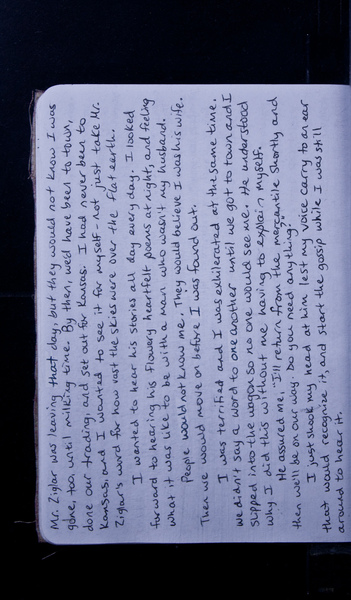 Mr. Ziglar was leaving that day, but they would not know I was
gone, too, until milking time. By then, we'd have been to town,
done our trading, and set out for Kansas. I had never been to
Kansas, and I wanted to see it for myself - not just take Mr.
Ziglar's word for how vast the skies were over the flat earth.
I wanted to hear his stories all day every day. I looked
forward to hearing his flowery heartfelt poems at night, and feeling
what it was like to be with a man who wasn't my husband.
People would not know me. They would believe I was his wife.
Then we would move on before I was found out.
I was terrified and I was exhilerated at the same time.
We didn't say a word to one another until we got to town and I
slipped into the wagon so no one would see me. He understood
why I did this without me having to explain myself.
He assured me, "I'll return from the mercantile shortly and
then we'll be on our way. Do you need anything?"
I just shook my head at him lest my voice carry to an ear
that would recognize it, and start the gossip while I was still
around to hear it.